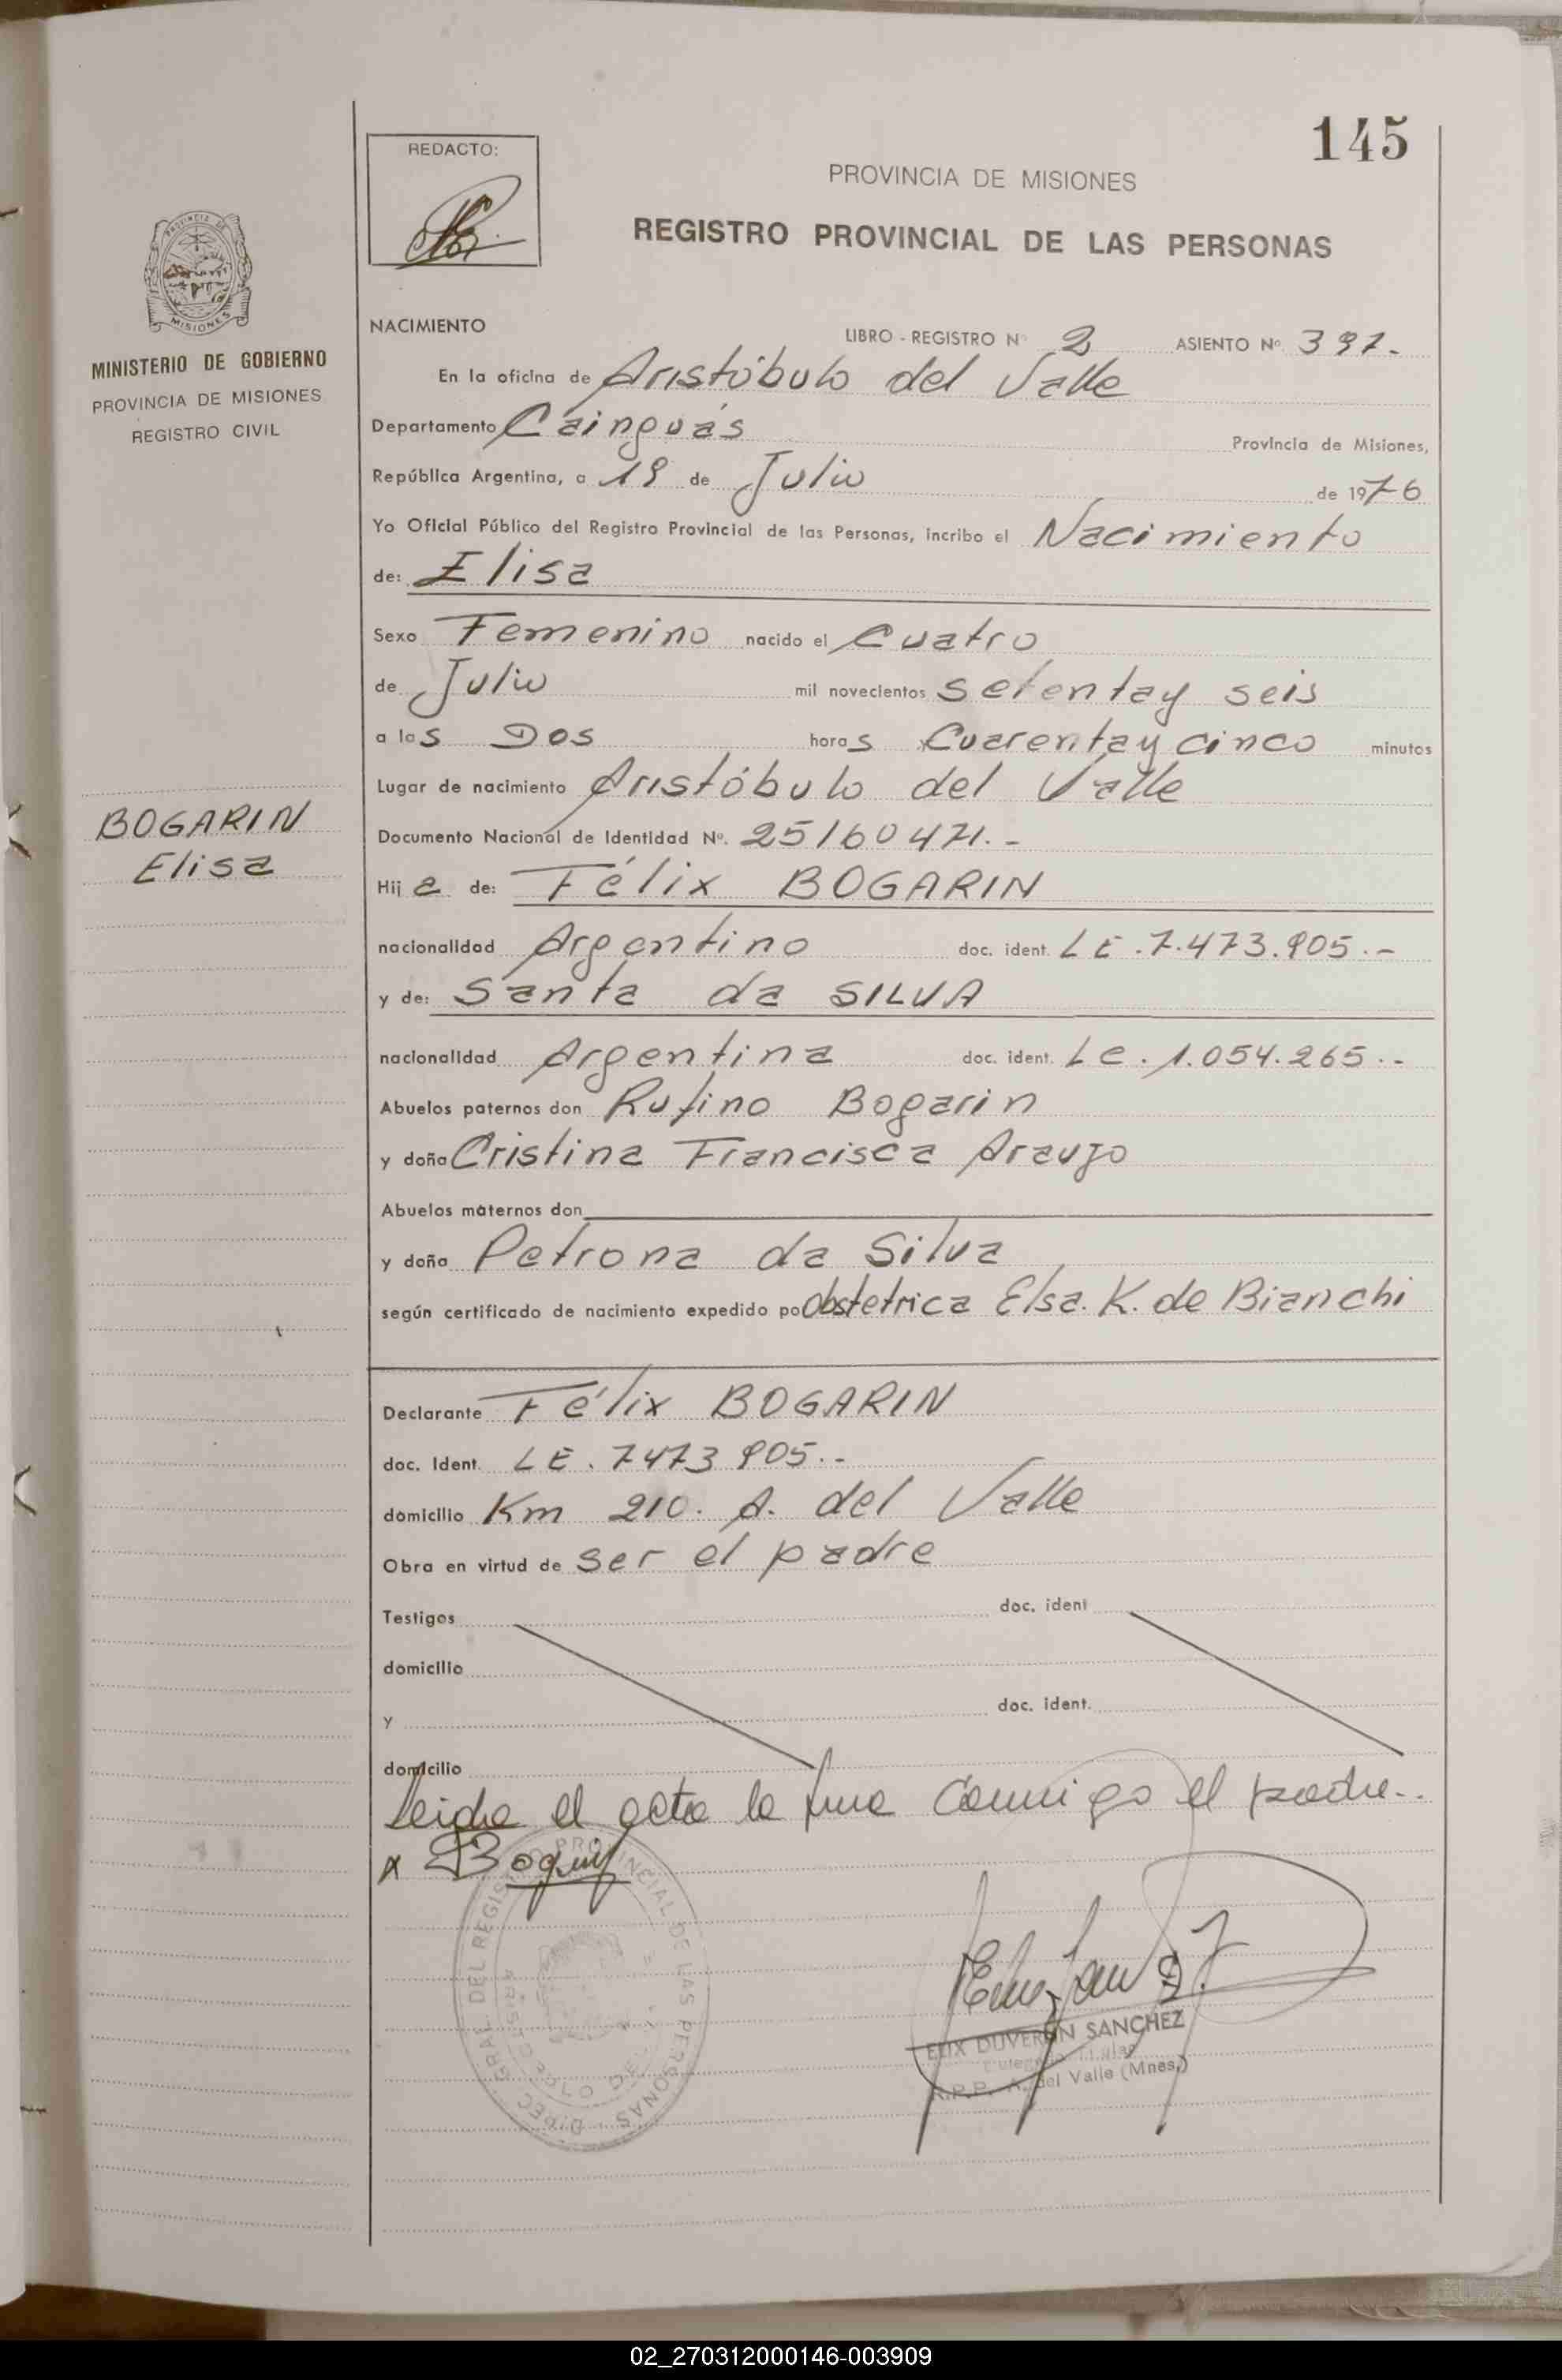 145
REDACTO:
PROVINCIA DE MISIONES
REGISTRO PROVINCIAL DE LAS PERSONAS
PROVINCIA DE
MISIONES
MINISTERIO DE GOBIERNO
PROVINCIA DE MISIONES
REGISTRO CIVIL
BOGARIN
Elisa
NACIMIENTO LIBRO - REGISTRO Nº 2 ASIENTO Nº 397.-
En la oficina de Aristóbulo del Valle
Departamento Cainguás Provincia de Misiones,
República Argentina, a 19 de Julio de 1976
Yo Oficial Público del Registro Provincial de las Personas, incribo el Nacimiento
de: Elisa
Sexo Femenino nacido el Cuatro
de Julio mil novecientos setentay seis
a las Dos horas Cuarentay cinco minutos
Lugar de nacimiento Aristóbulo del Valle
Documento Nacional de Identidad Nº. 25160471.-
Hija de: Félix BOGARIN
nacionalidad Argentino doc. ident. LE.7.473.905.-
y de: Santa da SILVA
nacionalidad Argentina doc. ident. LC.1.054.265.-
Abuelos paternos don Rufino Bogarin
y doña Cristina Francisca Araujo
Abuelos maternos don
y doña Petrona da Silva
según certificado de nacimiento expedido por Obstetrica Elsa.K.de Bianchi
Declarante Félix BOGARIN
doc. Ident. LE.7473905.-
domicilio Km 210. A. del Valle
Obra en virtud de ser el padre
Testigos doc. ident
domicilio
y doc. ident.
domicilio
Leida el acta la firma conmigo el padre..
x
DIREC. GRAL. DEL REGISTRO PROVINCIAL DE LAS PERSONAS
DUVERAN SANCHEZ
R.P.P. A. del Valle (Mnes.)
02_270312000146-003909